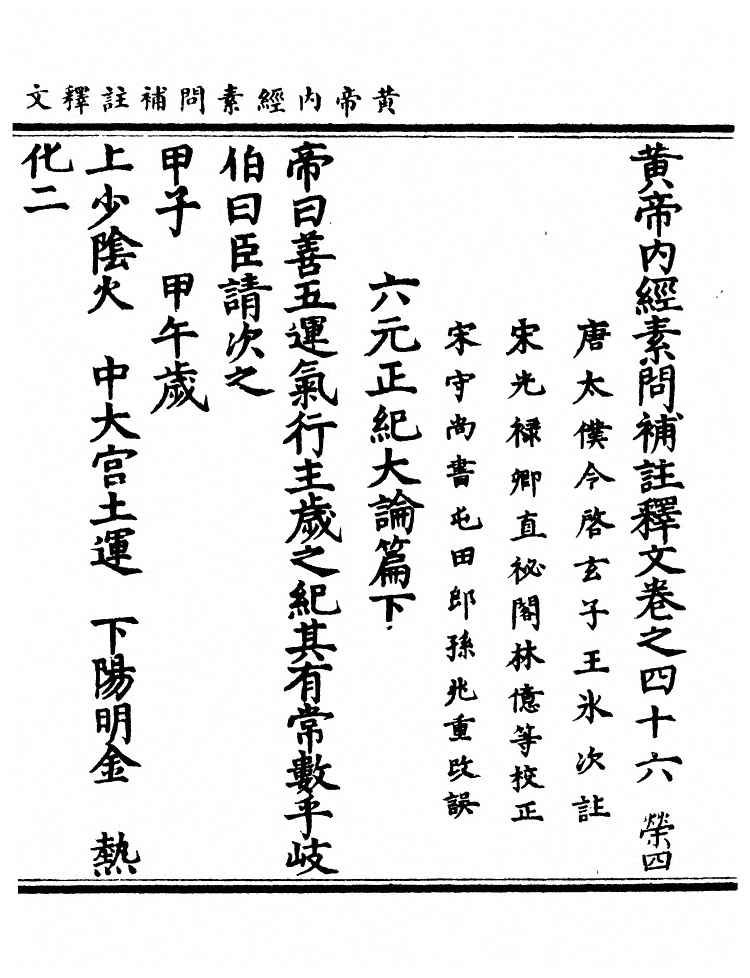 黃帝內經素問補註釋文
黃帝內經素問補註釋文卷之四十六 榮四
唐太僕令啓玄子王氷次註
宋光祿卿直祕閣林億等校正
宋守尚書屯田郎孫兆重改誤
六元正紀大論篇下
帝曰善五運氣行主歲之紀其有常數乎岐
伯曰臣請次之
甲子 甲午歲
上少陰火 中大宮土運 下陽明金 熱
化二